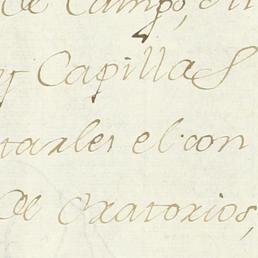 de Campo, en
y Capillas
tarles el con
de Oratorios,